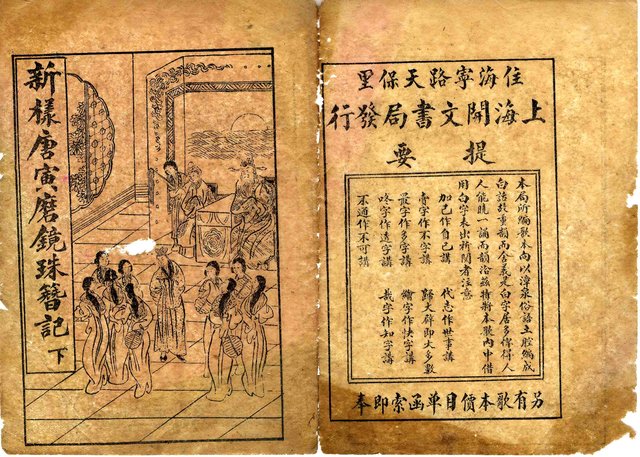 住海寧路天保里
上海開文書局發行
提要
本局所編歌本向以漳泉俗語土腔編成
白話故事韻而全義尤白字居多俾得人
人能曉一誦而韻洽茲特新本歌內中借
用白字表出新閱者注意
加己作自己講 代志作世事講
字作不字講 歸大碎即大多數
最字作多字講 字作快字講
字作字講 裁字作知字講
不通作不可講
另有歌本價目單函索即奉
新樣唐寅磨鏡珠簪記 下